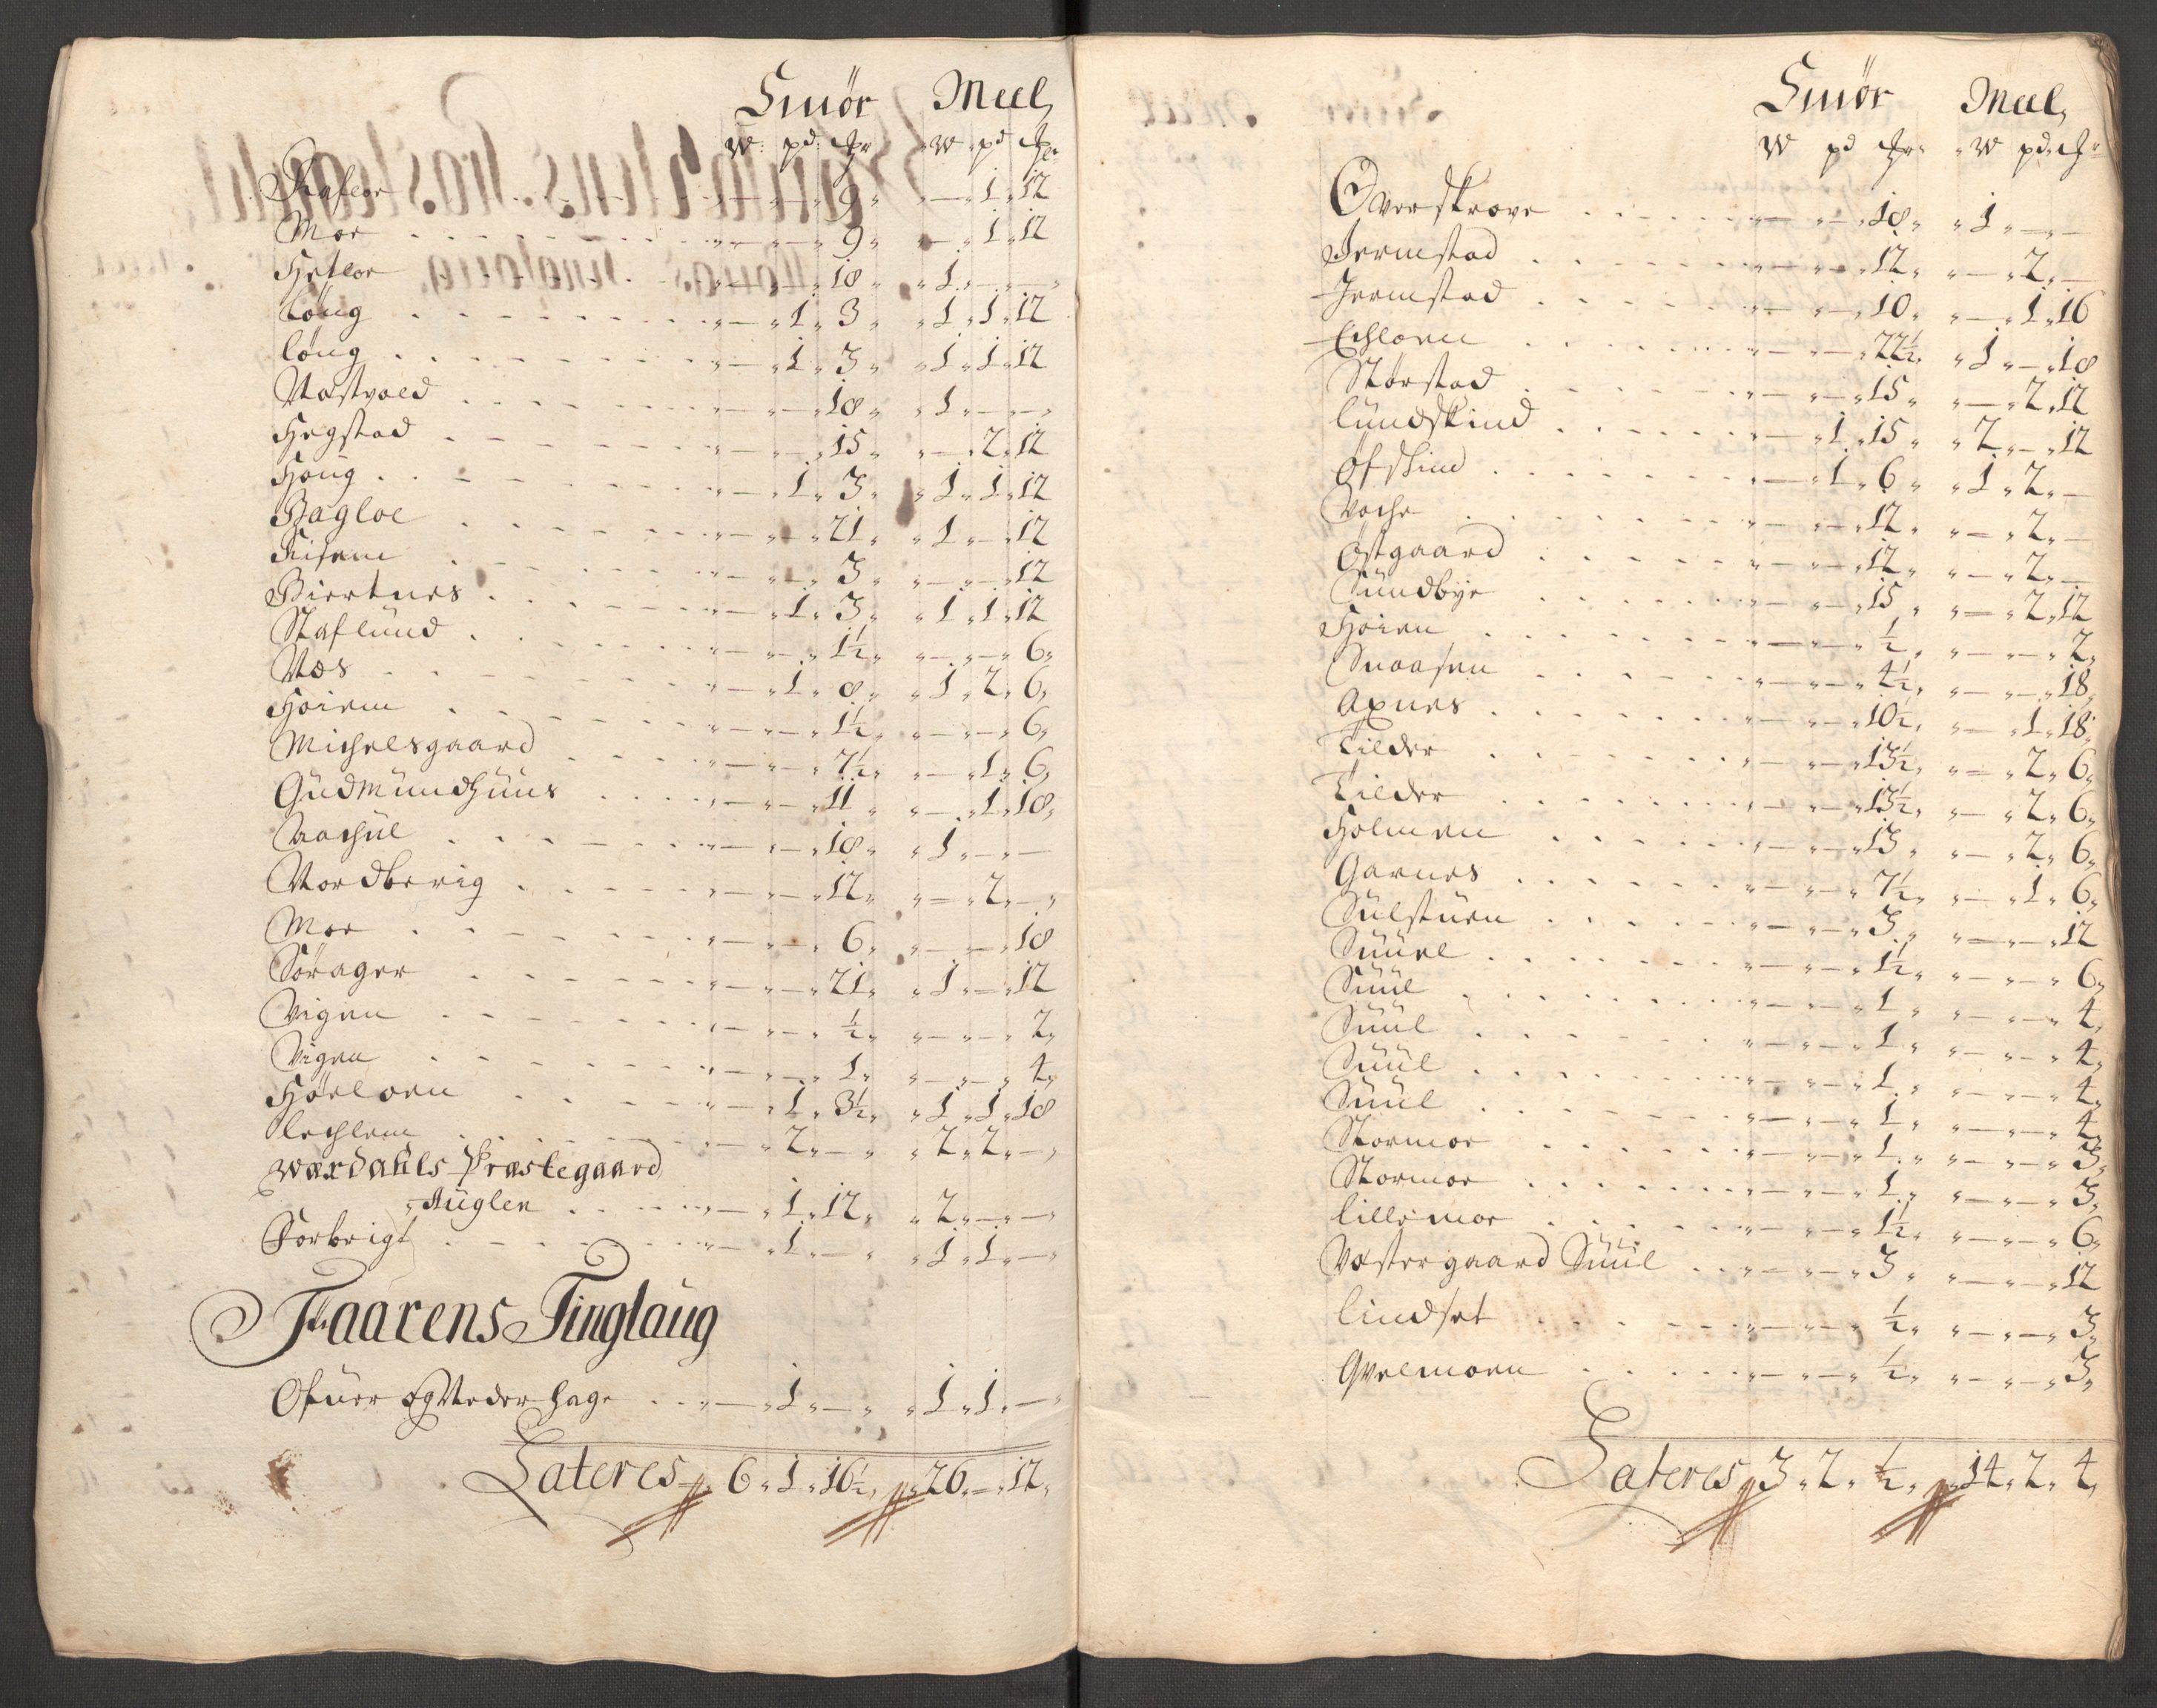 Smør Meel
W: pd: W: pd
9 — 1 12
Moe 9 — 1 12
Hetloe 18 1 — —
Løng 1 3 1 1 12
Løng 1 3 1 1 12
Nastvold 18 1 — —
Hegstad 15 — 2 12
Houg 1 3 1 1 12
Bagloe 21 1 — 12
Risem 3 — — 12
Biertnes 1 3 1 1 12
Staflund 1½ — — 6
Næs 1 8 1 2 6
Hoiem 1½ — — 6
Michelsgaard 7½ — 1 6
Gudmundhuus 11 — 1 18
Aachul 18 1 — —
Nordberig 12 — 2 —
Moe 6 — — 18
Sørager 21 1 — 12
Vigen ½ — — 2
Vigen 1 — — 4
Høeloen 1 3½ 1 1 18
Lechlem 2 — 2 2 —
Wærdahls Præstegaard
Auglen 1 12 2 — —
Forbrigt 1 — 1 1 —
Faarens Tinglaug
Ofuer og Neder hage 1 — 1 1 —
Lateres 6 1 16½ 26 — 12
Smør Meel
W pd W pd
Overskrove 18 1 — —
Jermstad 12 — 2 —
Jermstad 10 — 1 16
Echloen 22½ 1 — 18
Storstad 15 — 2 12
Lundskind 1 15 2 — 12
Ofskind 1 6 1 2 —
Voche 12 — 2 —
Østgaard 12 — 2 —
Sundbye 15 — 2 12
Hoien ½ — — 2
Snaasen 4½ — — 18
Axnes 10½ — 1 18
Tilder 13½ — 2 6
Tilder 13½ — 2 6
Holmen 13 — 2 6
Garnes 7½ — 1 6
Sulstuen 3 — — 12
Suuel 1½ — — 6
Suul 1 — — 4
Suul 1 — — 4
Suul 1 — — 4
Suul 1 — — 4
Stormoe 1 — — 3
Stormoe 1 — — 3
Lillemoe 1½ — — 6
Vestergaard Suul 3 — — 12
Lindset ½ — — 3
Qvelmoen ½ — — 3
Lateres 3 2 ½ 14 2 4